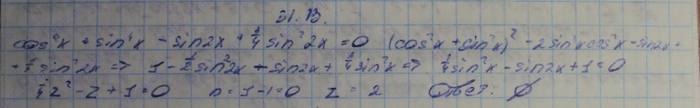 31.13.
cos⁴x + sin⁴x - sin2x + ¾ sin²2x = 0 (cos²x + sin²x)² - 2sin²x cos²x - sin2x +
+ ¾ sin²2x => 1 - ½ sin²2x - sin2x + ¾ sin²x => ¼ sin²x - sin2x + 1 = 0
¼ z² - z + 1 = 0 D = 1 - 1 = 0 z = 2 Ответ: ∅